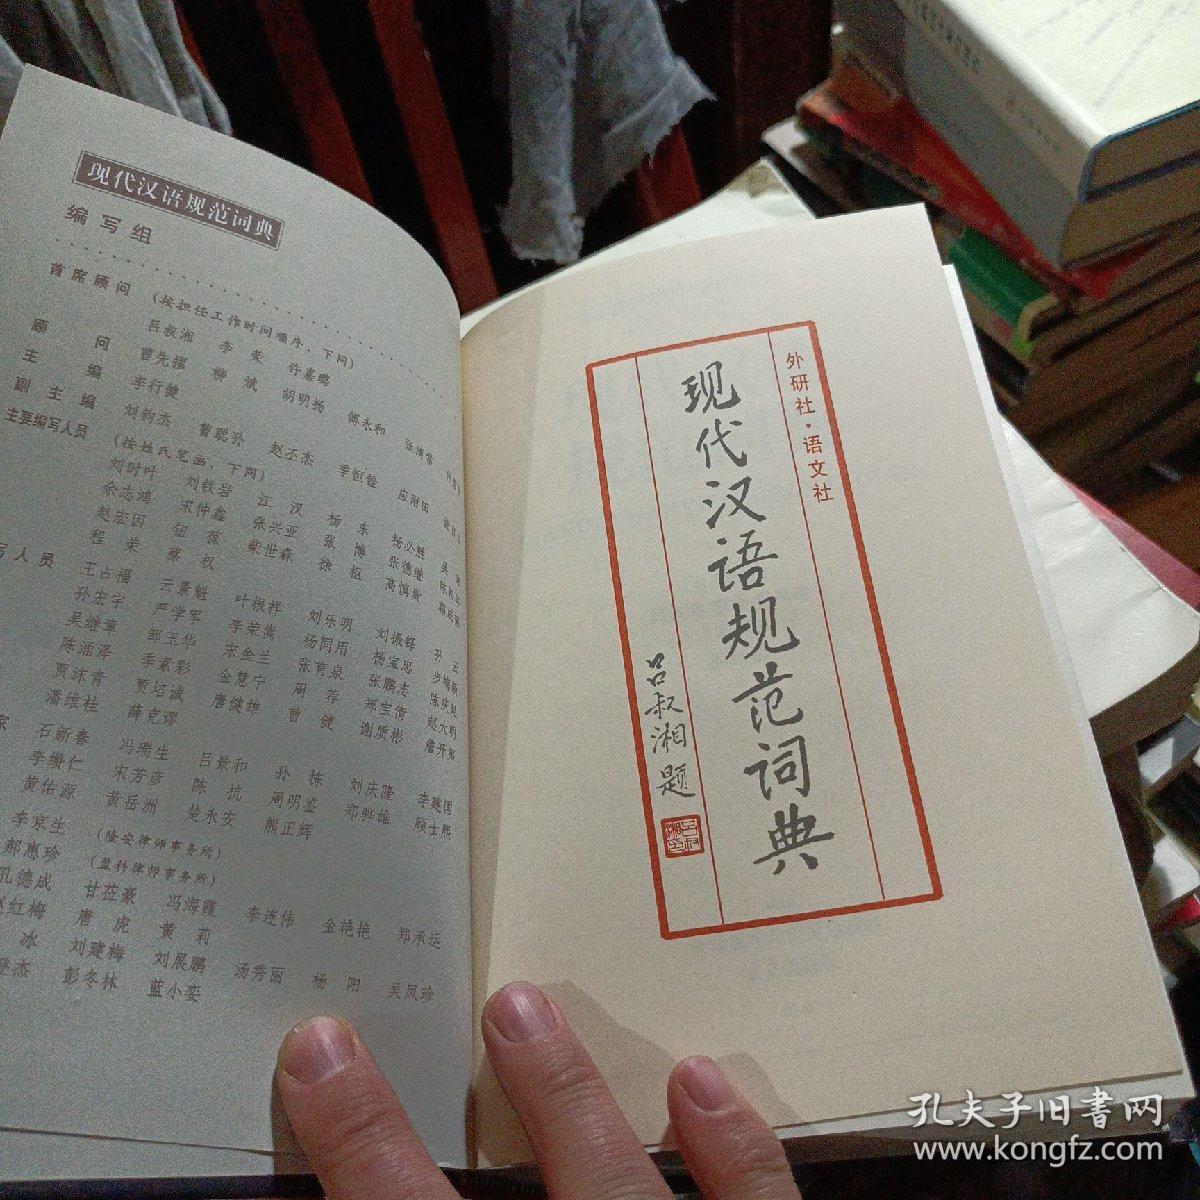 现代汉语规范词典
编写组
首席顾问 (按担任工作时间顺序,下同)
吕叔湘 李荣 许嘉璐
顾问 曹先擢 柳斌 胡明扬 傅永和 张清常
主编 李行健
副主编 刘钧杰 曹聪孙 赵丕杰 季恒铨 应雨田
主要编写人员 (按姓氏笔画,下同)
刘时叶 刘铁岩 江汉 杨东 杨必胜
余志鸿 宋仲鑫 张兴亚 张博 张德继
赵宏因 钮葆 柴世森 徐枢 高慎贵
程荣 蔡权
写人员 王占福 云景魁 叶根祥 刘乐明 刘振铎 孙云
孙宏宇 严学军 李荣嵩 杨同用 杨宝忠
吴继章 邹玉华 宋金兰 张育泉 张鹏志 陈庆延
陈浦泽 季素彩 金慧宁 周荐 郑宝倩 赵大明
贾沐青 贾培诚 唐健雄 曹健 谢质彬 詹开
潘维柱 薛克谬
家 石新春 冯瑞生 吕景和 孙栋 刘庆隆 李建国
李缵仁 宋芳彦 陈抗 周明鉴 郑骅雄 顾士熙
黄佑源 黄岳洲 楚永安 熊正辉
李京生 (隆安律师事务所)
郝惠珍 (盈科律师事务所)
孔德成 甘莅豪 冯海霞 李连伟 金艳艳 郑承运
红梅 唐虎 黄莉
冰 刘建梅 刘展鹏 汤秀丽 杨阳 吴凤珍
杰 彭冬林 蓝小奕
外研社·语文社
现代汉语规范词典
吕叔湘 题
孔夫子旧书网
www.kongfz.com